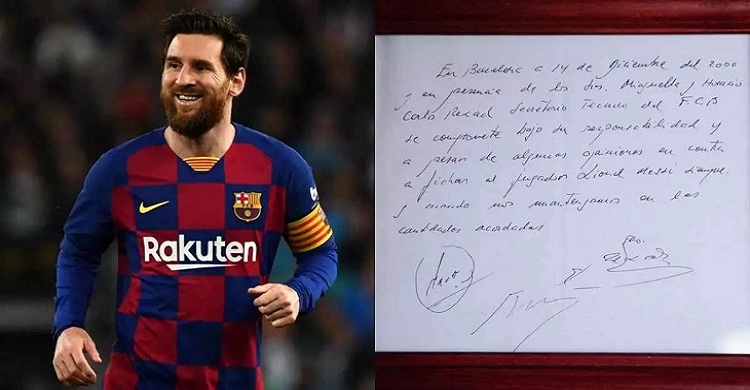 Rakuten
En Barcelona a 14 de Diciembre del 2000
y en presencia de los Srs. Minguella y Horacio
Carlos Rexach Secretario Técnico del F.C.B
se compromete bajo su responsabilidad y
a pesar de algunas opiniones en contra
a fichar al jugador Lionel Messi siempre
y cuando nos mantengamos en las
cantidades acordadas